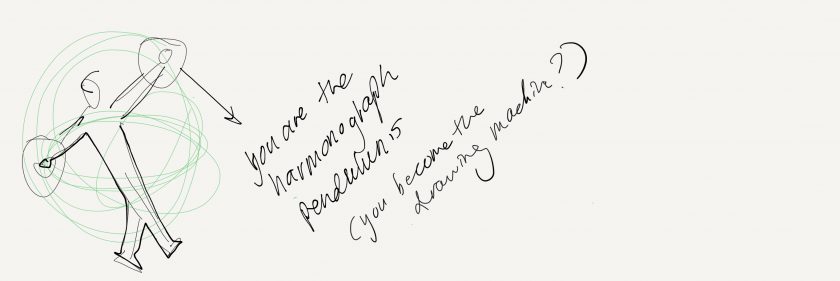 you are the
harmonograph
pendulums
(you become the
drawing machine?)